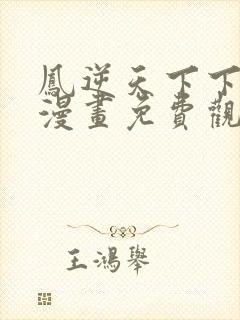 鳳逆天下下
漫畫免費觀
王鴻舉